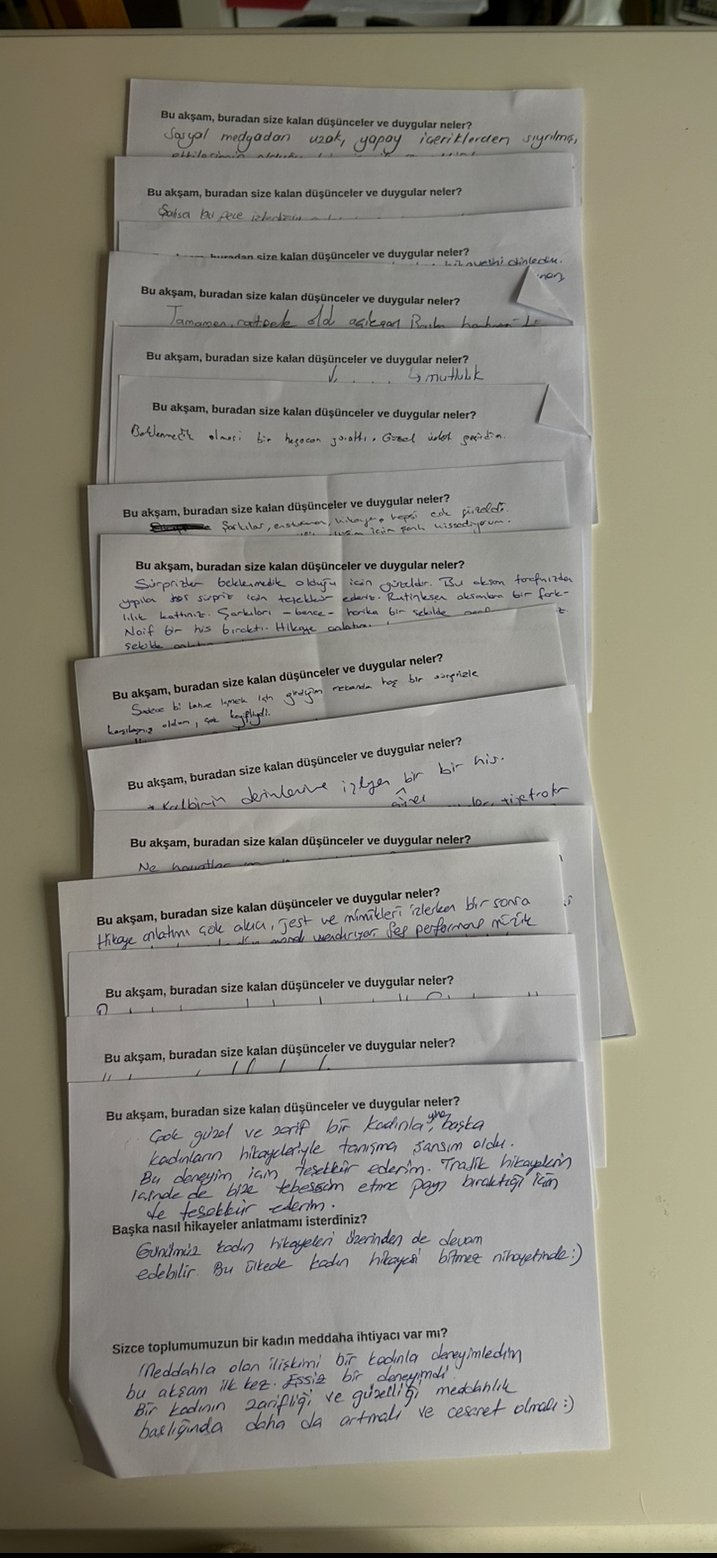 Bu akşam, buradan size kalan düşünceler ve duygular neler?
Sosyal medyadan uzak, yapay içeriklerden sıyrılmış,
Bu akşam, buradan size kalan düşünceler ve duygular neler?
Şahsa bu gece
buradan size kalan düşünceler ve duygular neler?
dinledim.
Bu akşam, buradan size kalan düşünceler ve duygular neler?
Tamamen
Bu akşam, buradan size kalan düşünceler ve duygular neler?
↳ mutluluk
Bu akşam, buradan size kalan düşünceler ve duygular neler?
Beklenmedik olması bir heyecan yarattı. Güzel vakit geçirdim.
Bu akşam, buradan size kalan düşünceler ve duygular neler?
Şarkılar, enstruman, hikaye, hepsi çok güzeldi.
için şanslı hissediyorum.
Bu akşam, buradan size kalan düşünceler ve duygular neler?
Sürprizler beklenmedik olduğu için güzeldir. Bu akşam tarafınızdan
yapılan hoş sürpriz için teşekkür ederiz. Rutinleşen akşamlara bir fark-
lılık kattınız. Şarkıları -bence- harika bir şekilde
Naif bir his bıraktı. Hikaye anlatımı
şekilde
Bu akşam, buradan size kalan düşünceler ve duygular neler?
Sadece bi kahve içmek için girdiğim mekanda hoş bir sürprizle
karşılaşmış oldum, çok keyifliydi.
Bu akşam, buradan size kalan düşünceler ve duygular neler?
Kalbinin derinlerine işleyen bir bir his.
güzel
Bu akşam, buradan size kalan düşünceler ve duygular neler?
Ne hayatlar
Bu akşam, buradan size kalan düşünceler ve duygular neler?
Hikaye anlatımı çok akıcı, jest ve mimikleri izlerken bir sonra
Ses performans müzik
Bu akşam, buradan size kalan düşünceler ve duygular neler?
Bu akşam, buradan size kalan düşünceler ve duygular neler?
Bu akşam, buradan size kalan düşünceler ve duygular neler?
Çok güzel ve zarif bir kadınla, yine başka
kadınların hikayeleriyle tanışma şansım oldu.
Bu deneyim için teşekkür ederim. Trajik hikayelerin
içinde de bize tebessüm etme payı bıraktığı için
de teşekkür ederim.
Başka nasıl hikayeler anlatmamı isterdiniz?
Günümüz kadın hikayeleri üzerinden de devam
edebilir. Bu ülkede kadın hikayesi bitmez nihayetinde :)
Sizce toplumumuzun bir kadın meddaha ihtiyacı var mı?
Meddahla olan ilişkimi bir kadınla deneyimledim
bu akşam ilk kez. Eşsiz bir deneyimdi.
Bir kadının zarifliği ve güzelliği meddahlık
başlığında daha da artmalı ve cesaret olmalı :)